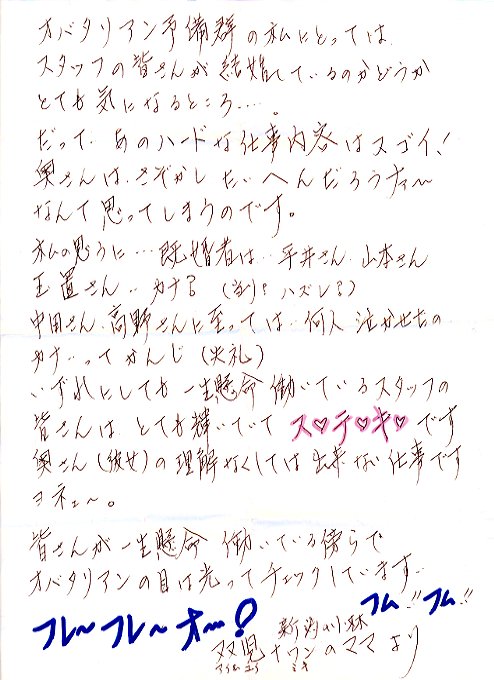 オバタリアン予備群の私にとっては
スタッフの皆さんが結婚しているのかどうか
とても気になるところ….
だって、あのハードな仕事内容はスゴイ!
奥さんは、さぞかし たいへんだろうナァ〜
なんて思ってしまうのです。
私の思うに…既婚者は…平井さん、山本さん
玉置さん…カナ? (当り? ハズレ?)
中田さん、高野さんに至っては…何人 泣かせたの
カナ…ってかんじ(失礼)
いずれにしても 一生懸命 働いているスタッフの
皆さんは とても輝いていて ス♡テ♡キ♡です
奥さん(彼女)の理解なくしては出来ない仕事です
ヨネェ〜。
皆さんが一生懸命 働いている傍らで
オバタリアンの目は光ってチェックしています…
フム!! フム!!
フレ〜フレ〜オ〜!
双児+ワンのママより